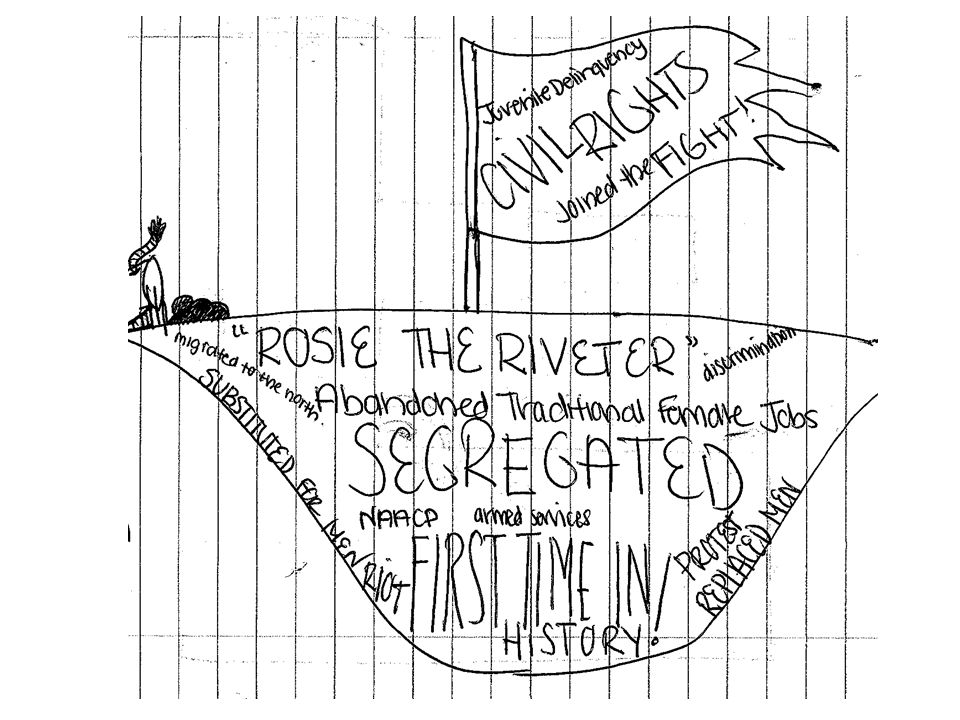 Juvenile Delinquency
CIVIL RIGHTS
Joined the FIGHT!
"ROSIE THE RIVETER"
discrimination
migrated to the north.
Abandoned Traditional Female Jobs
SUBSTITUTED FOR MEN
SEGREGATED
NAACP armed services
RIOT
FIRST TIME IN
HISTORY!
PROTEST
REPLACED MEN